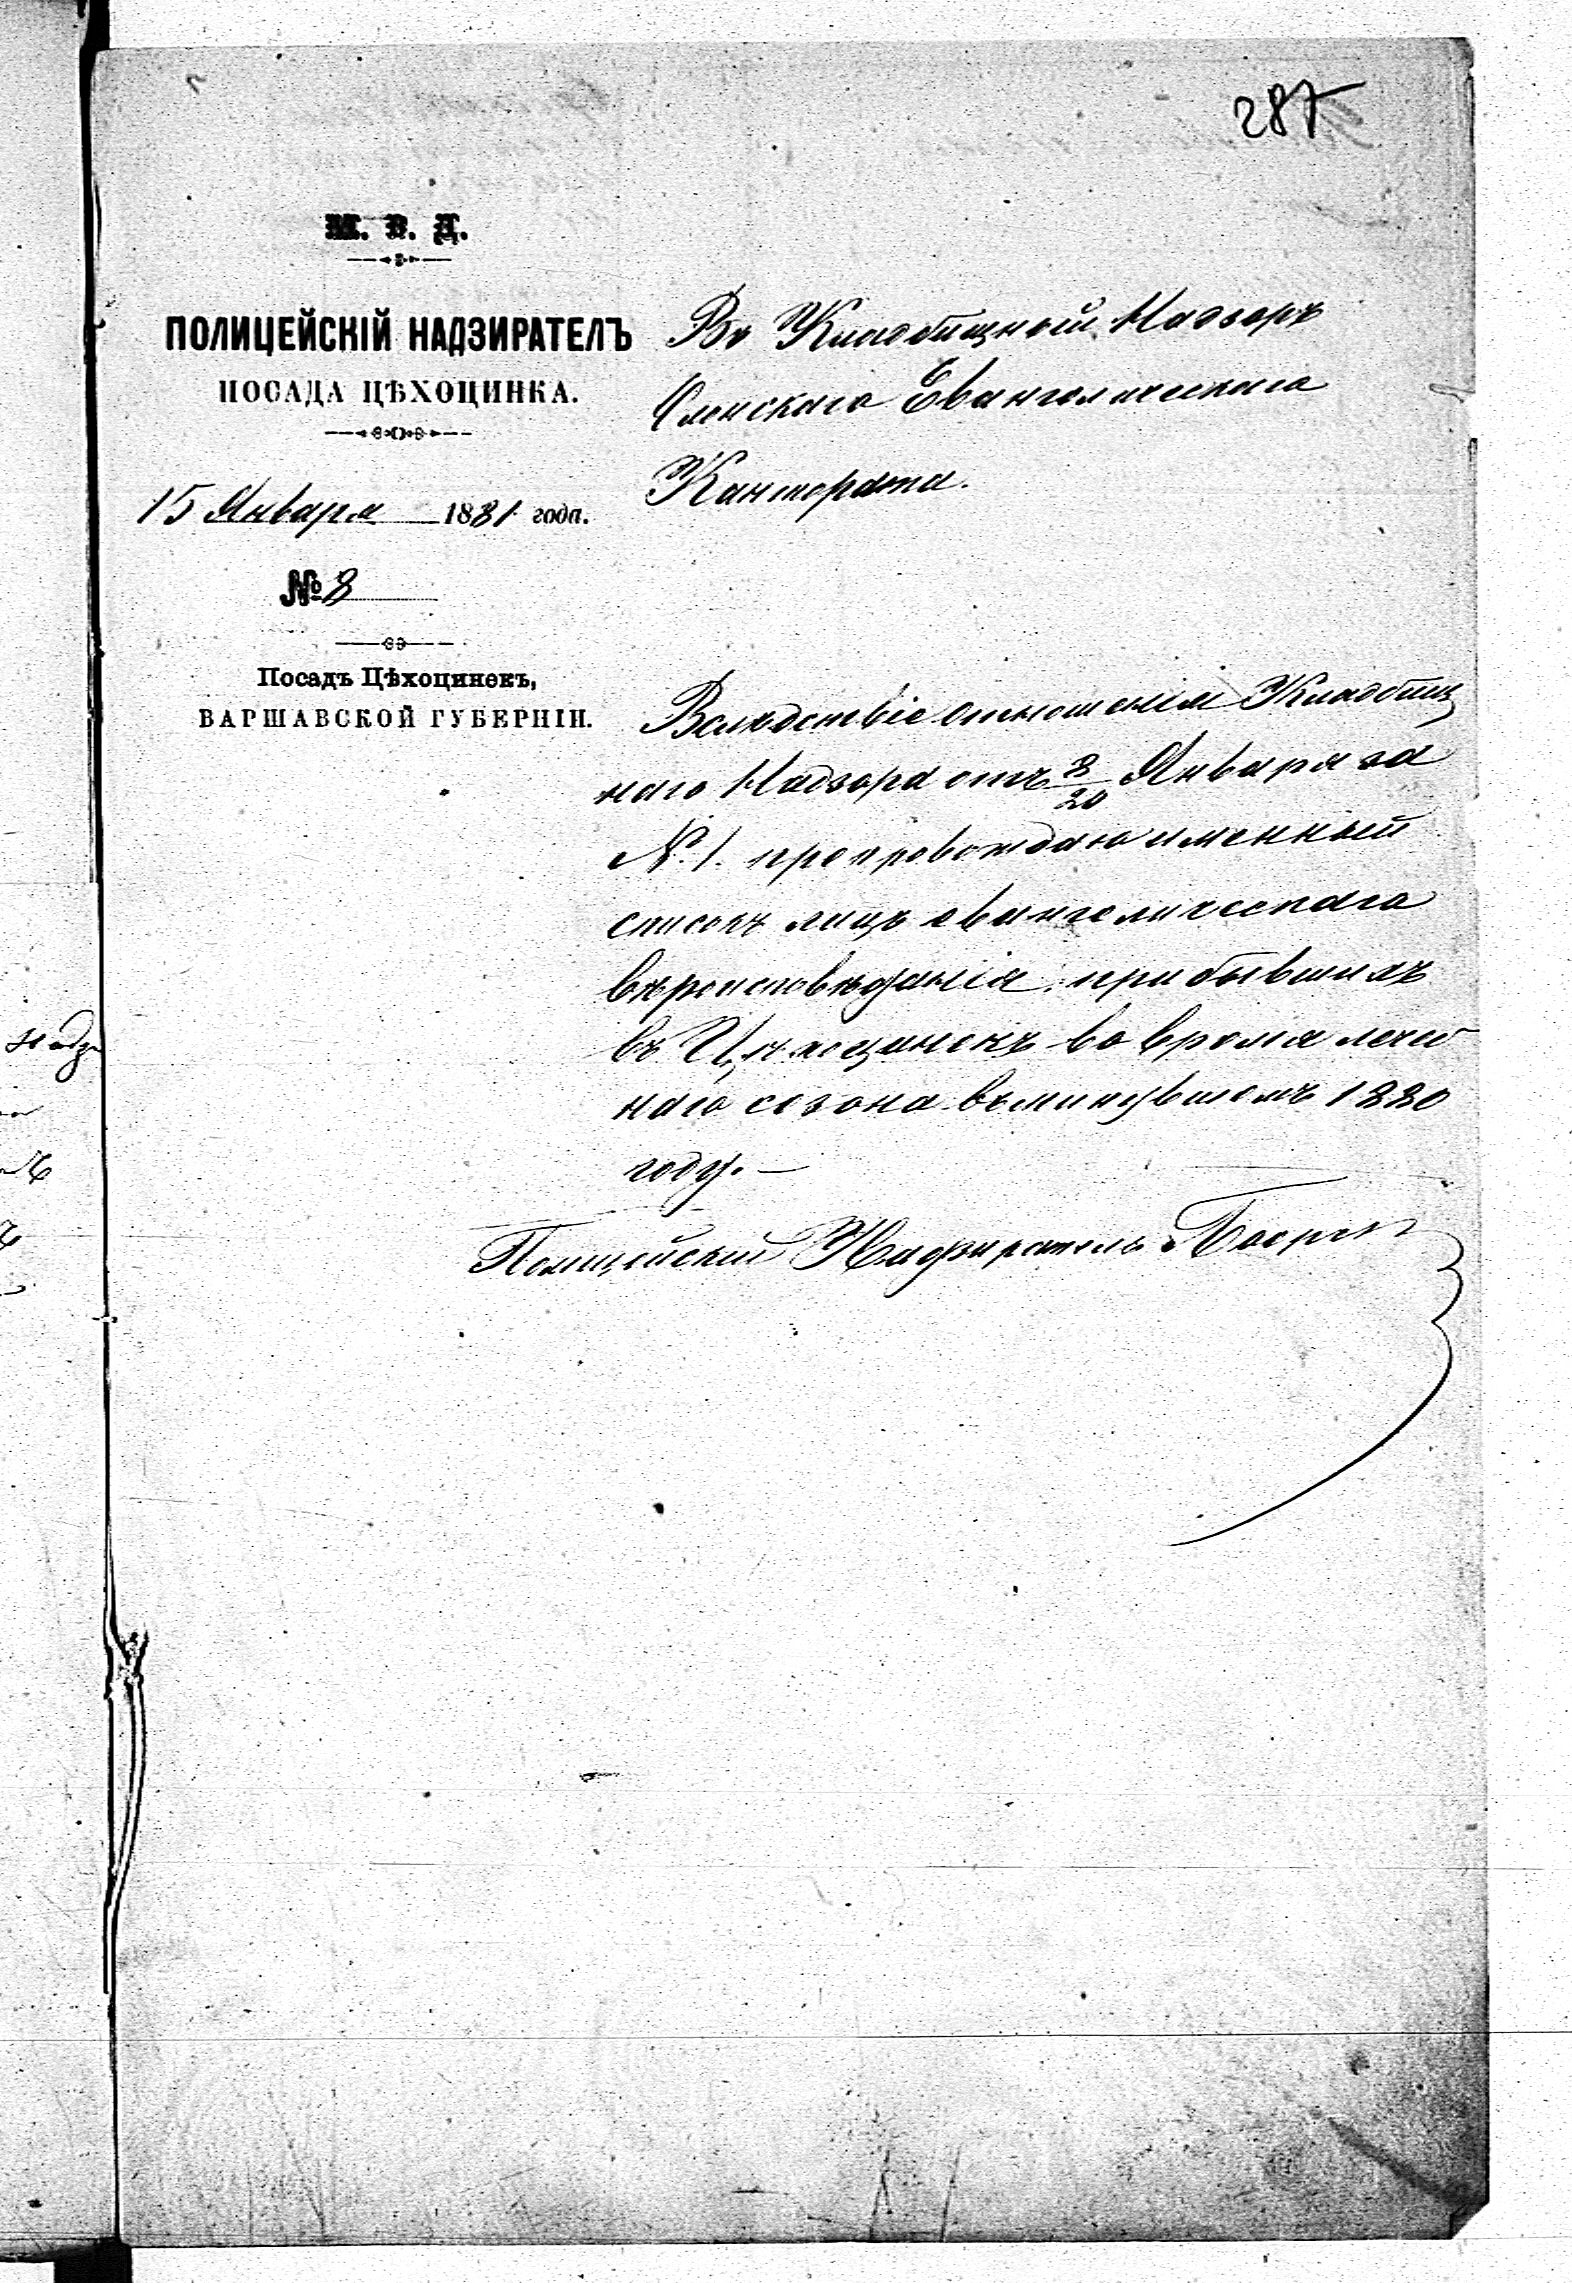 287
М. В. Д.
ПОЛИЦЕЙСКІЙ НАДЗИРАТЕЛЪ
ПОСАДА ЦѢХОЦИНКА.
15 Января 1881 года.
№ 8
Посадъ Цѣхоцинекъ,
ВАРШАВСКОЙ ГУБЕРНІИ.
Въ Кладбищный Надзоръ
Слонскаго Евангелическаго
Кантората.
Вслѣдствіе отношенія Кладбищ
наго Надзора отъ 8/20 Января за
№ 1. препровождаю именный
списокъ лицъ евангелическаго
вѣроисповѣданія, прибывшихъ
въ Цѣхоцинекъ во время лечеб
наго сезона въ минувшемъ 1880
году. —
Полицейский Надзиратель